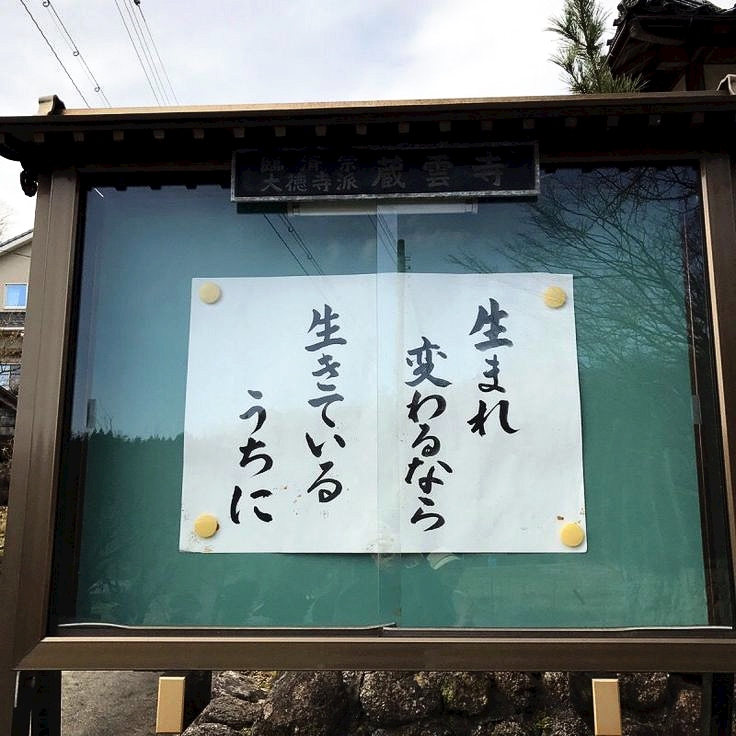 臨済宗
大徳寺派
蔵雲寺
生まれ
変わるなら
生きている
うちに